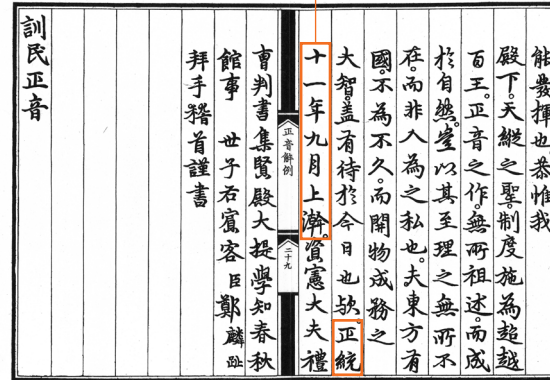 能發揮也恭惟我
殿下。天縱之聖。制度施為超越
百王。正音之作。無所祖述。而成
於自然。豈以其至理之無所不
在。而非人為之私也。夫東方有
國。不為不久。而開物成務之
大智。盖有待於今日也欤。正統
十一年九月上澣。資憲大夫禮
正音解例
二十九
曺判書集賢殿大提學知春秋
館事 世子右賓客臣鄭麟趾
拜手稽首謹書
訓民正音